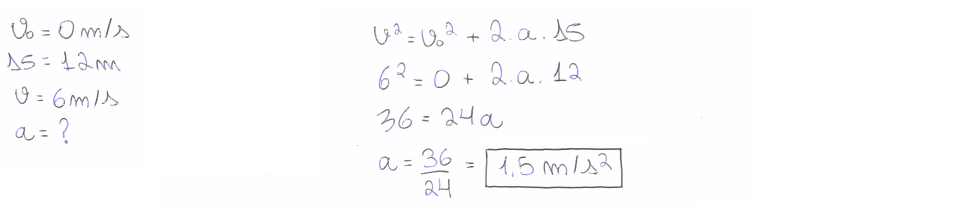 v₀ = 0 m/s
ΔS = 12m
v = 6m/s
a = ?
v² = v₀² + 2.a.ΔS
6² = 0 + 2.a.12
36 = 24a
a = 36/24 = 1,5 m/s²